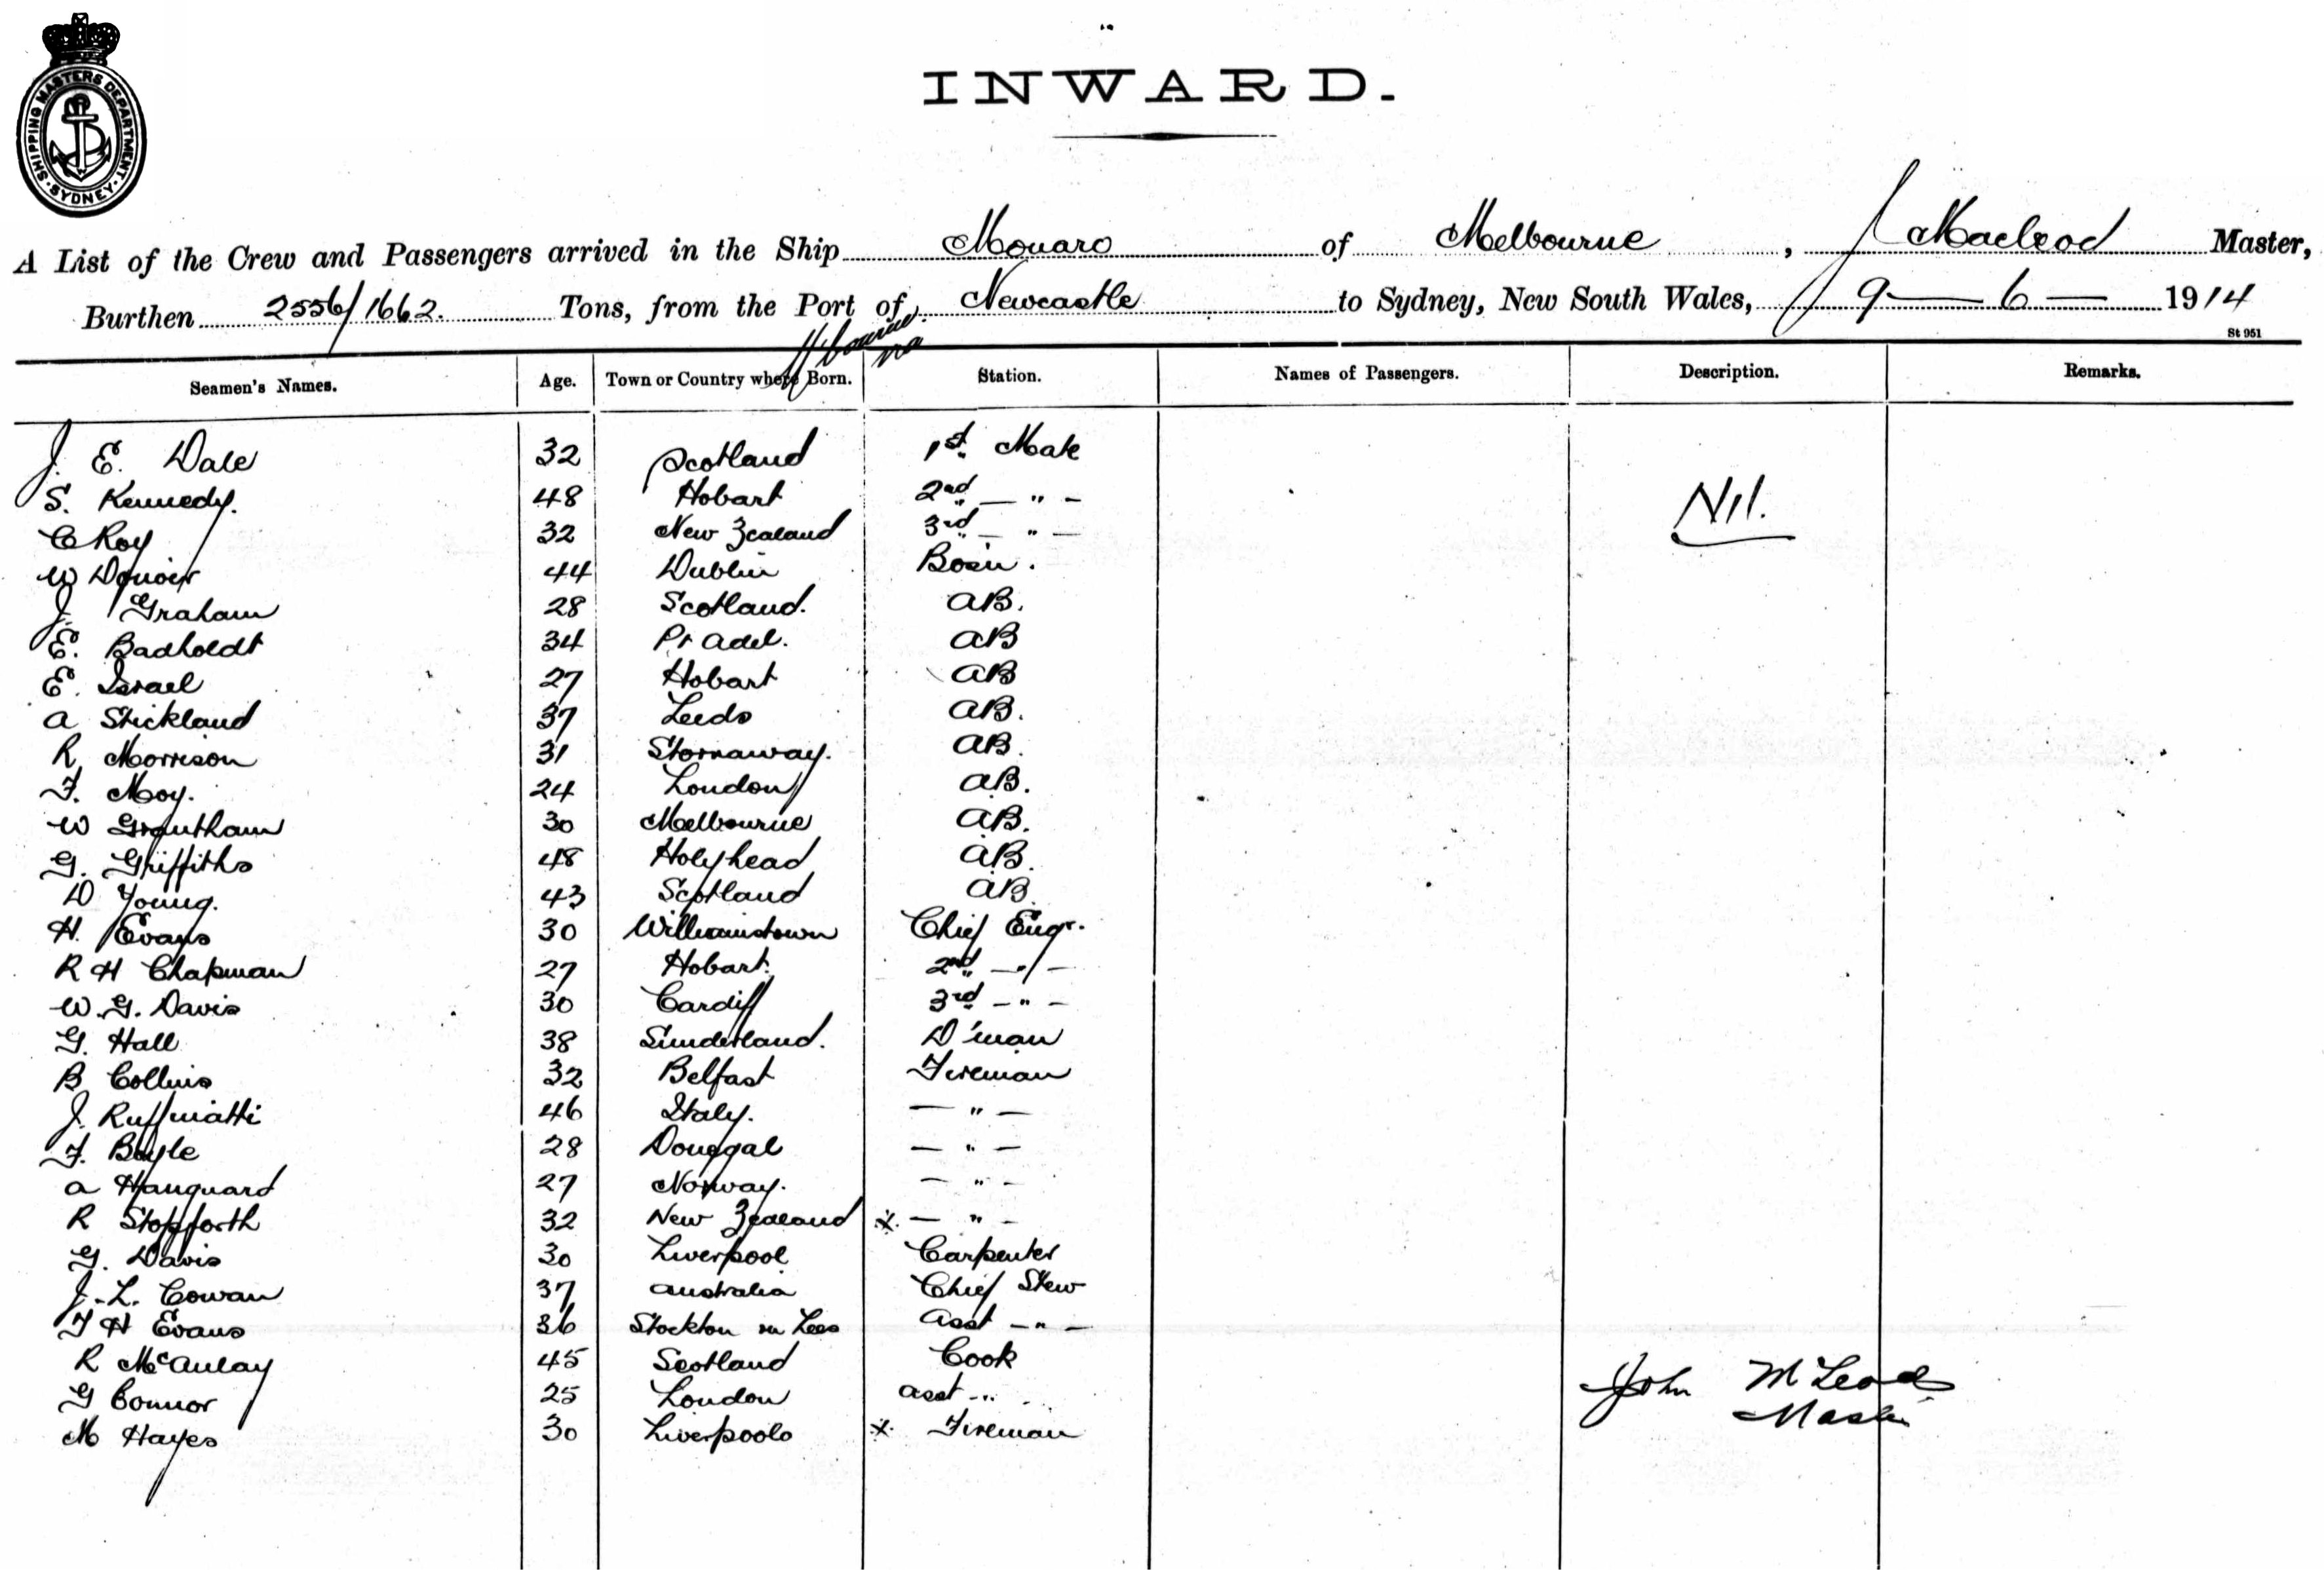 INWARD.
SHIPPING MASTERS DEPARTMENT. SYDNEY.
A List of the Crew and Passengers arrived in the Ship Monaro of Melbourne, J Macleod Master,
Burthen 2556/1662. Tons, from the Port of Newcastle to Sydney, New South Wales, 9 — 6 — 1914
St 951
Seamen's Names. Age. Town or Country where Born. Station. Names of Passengers. Description. Remarks.
J. E. Dale 32 Scotland 1st Mate
S. Kennedy. 48 Hobart 2nd — " —
Nil.
C Roy 32 New Zealand 3rd — " —
W 44 Dublin Bosn.
J. Graham 28 Scotland. AB.
E. Badholdt 34 Pt Adel. AB
E. Israel 27 Hobart AB
A Stickland 37 Leeds AB.
R Morrison 31 Stornaway. AB.
F. Moy. 24 London AB.
W Grantham 30 Melbourne AB.
G. Griffiths 48 Holyhead AB.
D Young. 43 Scotland AB.
H. Evans 30 Williamstown Chief Engr.
R H Chapman 27 Hobart. 2nd — " —
W. G. Davis 30 Cardiff 3rd — " —
G. Hall 38 Sunderland. D'man
B Collins 32 Belfast Fireman
J. Ruffinatti 46 Italy. — " —
F. Boyle 28 Donegal — " —
A Hanguard 27 Norway. — " —
R Stopforth 32 New Zealand x. — " —
G. Davis 30 Liverpool Carpenter
J. L. Cowan 37 Australia Chief Stew
F H Evans 36 Stockton on Tees Asst — " —
R McAulay 45 Scotland Cook
G Connor 25 London Asst — "
M Hayes 30 Liverpool x. Fireman
John McLeod
Master